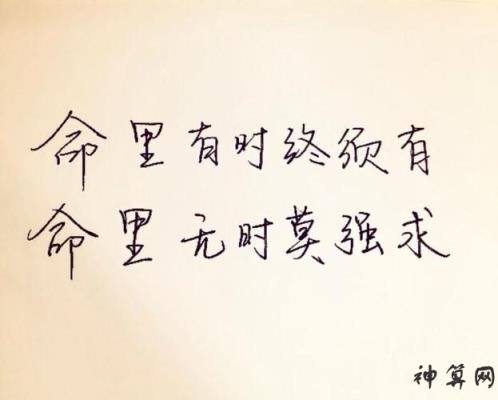 命里有时终须有
命里无时莫强求
神算网